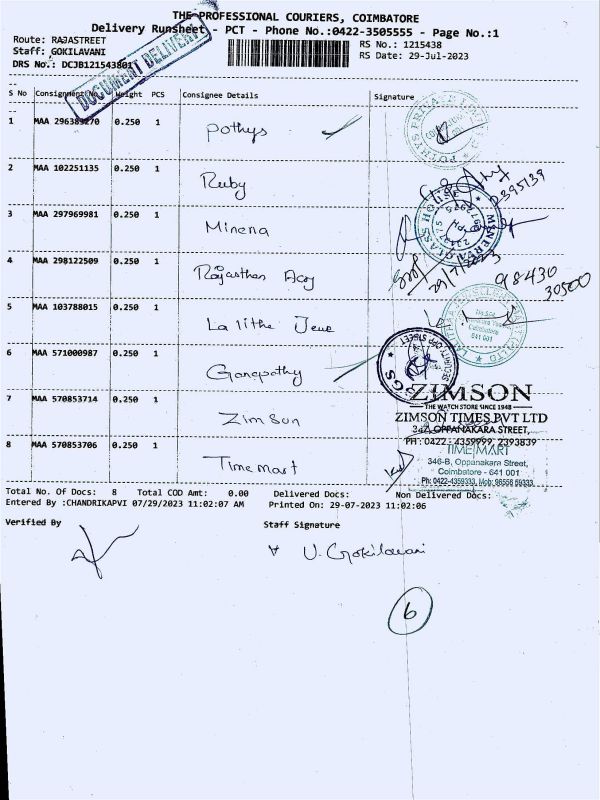 THE PROFESSIONAL COURIERS, COIMBATORE
Delivery Runsheet - PCT - Phone No.:0422-3505555 - Page No.:1
Route: RAJASTREET
Staff: GOKILAVANI
DRS No.: DCJB121543801
RS No.: 1215438
RS Date: 29-Jul-2023
DOCUMENT DELIVERY
S No Consignment No. Weight PCS Consignee Details Signature
1 MAA 296383270 0.250 1 Pothys
2 MAA 102251135 0.250 1 Ruby
2395139
3 MAA 297969981 0.250 1 Minena
GLASS HOUSE
29/7/2023
4 MAA 298122509 0.250 1 Rajasthan Acy
98430
30500
5 MAA 103788015 0.250 1 Lalitha Jeue
Coimbatore
641 001
6 MAA 571000987 0.250 1 Ganapathy
7 MAA 570853714 0.250 1 Zim Sun
ZIMSON
THE WATCH STORE SINCE 1948
ZIMSON TIMES PVT LTD
OPPANAKARA STREET,
PH : 0422 - 4359999, 2393839
8 MAA 570853706 0.250 1 Time mart
TIME MART
346-B, Oppanakara Street,
Coimbatore - 641 001
Ph: 0422-4359333, Mob: 96556 59333
Total No. Of Docs: 8 Total COD Amt: 0.00 Delivered Docs: Non Delivered Docs:
Entered By :CHANDRIKAPVI 07/29/2023 11:02:07 AM Printed On: 29-07-2023 11:02:06
Verified By Staff Signature
U. Gokilavani
6